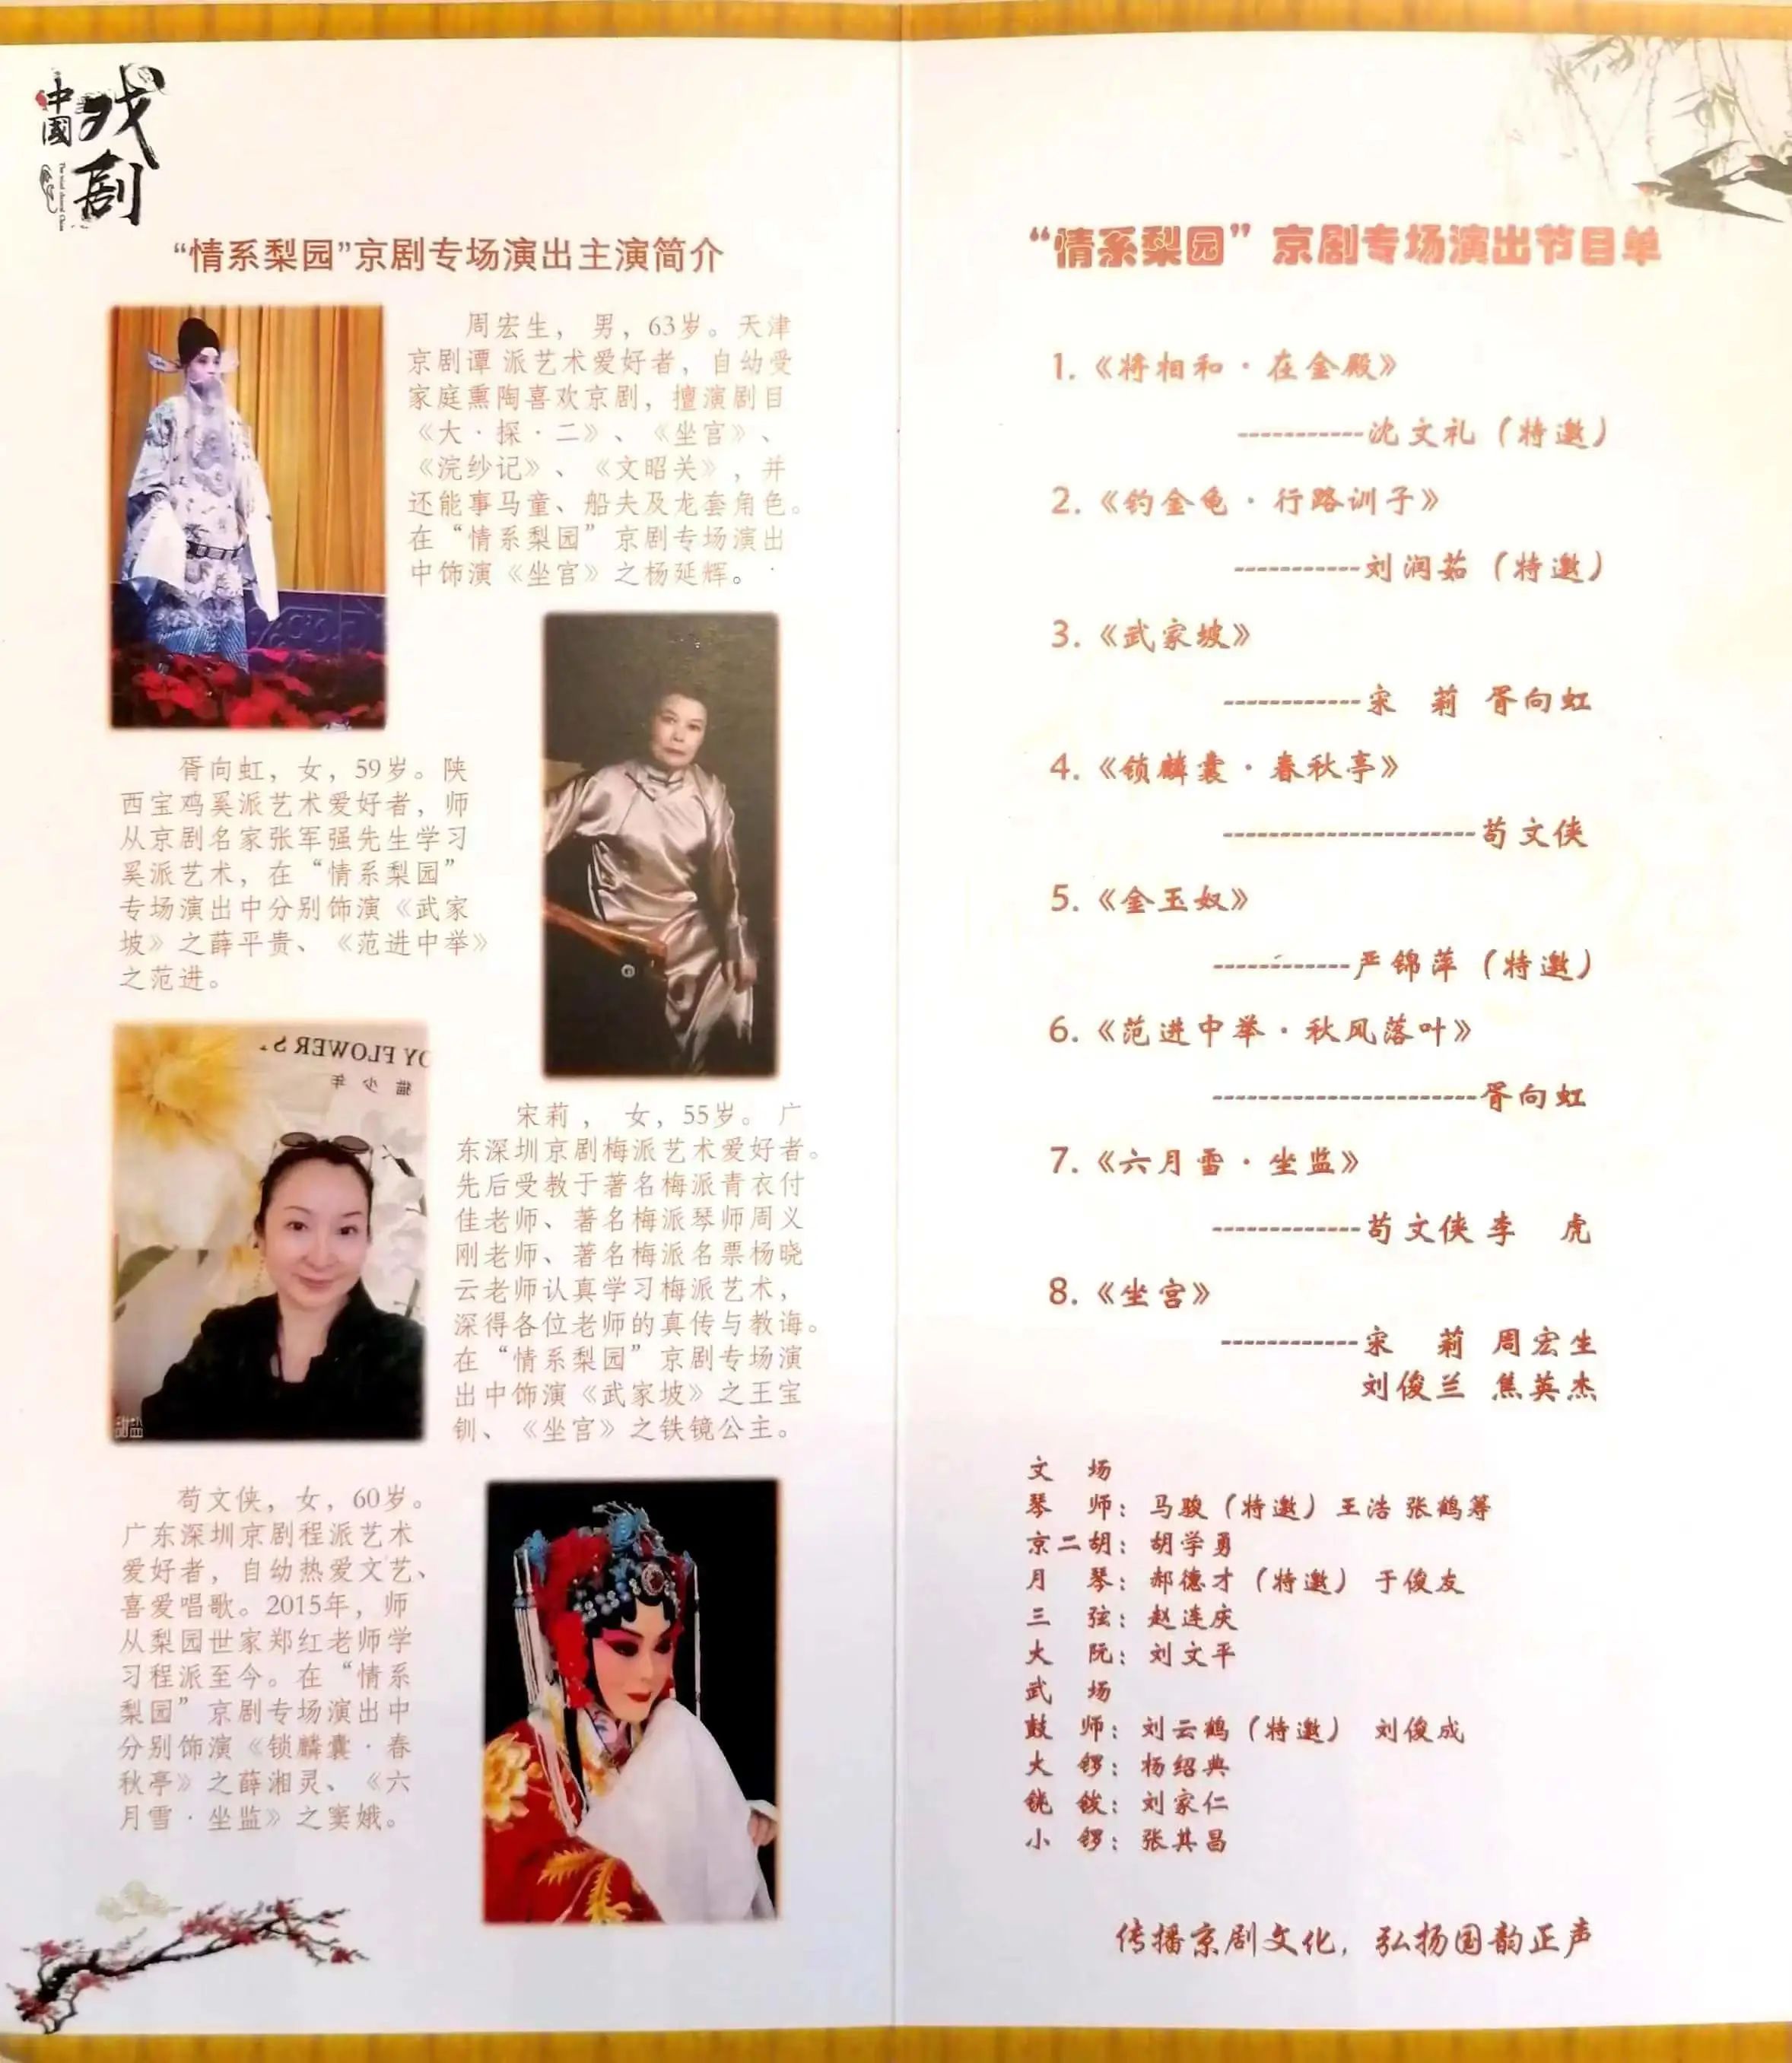 中國
戏剧
“情系梨园”京剧专场演出主演简介
周宏生，男，63岁。天津
京剧谭派艺术爱好者，自幼受
家庭熏陶喜欢京剧，擅演剧目
《大·探·二》、《坐宫》、
《浣纱记》、《文昭关》，并
还能事马童、船夫及龙套角色。
在“情系梨园”京剧专场演出
中饰演《坐宫》之杨延辉。
胥向虹，女，59岁。陕
西宝鸡奚派艺术爱好者，师
从京剧名家张军强先生学习
奚派艺术，在“情系梨园”
专场演出中分别饰演《武家
坡》之薛平贵、《范进中举》
之范进。
OY FLOWER S
猫少年
甜盐
宋莉，女，55岁。广
东深圳京剧梅派艺术爱好者。
先后受教于著名梅派青衣付
佳老师、著名梅派琴师周义
刚老师、著名梅派名票杨晓
云老师认真学习梅派艺术，
深得各位老师的真传与教诲。
在“情系梨园”京剧专场演
出中饰演《武家坡》之王宝
钏、《坐宫》之铁镜公主。
荀文侠，女，60岁。
广东深圳京剧程派艺术
爱好者，自幼热爱文艺、
喜爱唱歌。2015年，师
从梨园世家郑红老师学
习程派至今。在“情系
梨园”京剧专场演出中
分别饰演《锁麟囊·春
秋亭》之薛湘灵、《六
月雪·坐监》之窦娥。
“情系梨园”京剧专场演出节目单
1.《将相和·在金殿》
-----------沈文礼（特邀）
2.《钓金龟·行路训子》
-----------刘润茹（特邀）
3.《武家坡》
------------宋 莉 胥向虹
4.《锁麟囊·春秋亭》
----------------------荀文侠
5.《金玉奴》
------------严锦萍（特邀）
6.《范进中举·秋风落叶》
-----------------------胥向虹
7.《六月雪·坐监》
-------------荀文侠 李 虎
8.《坐宫》
------------宋 莉 周宏生
刘俊兰 焦英杰
文 场
琴 师：马骏（特邀）王浩 张鹤筹
京二胡：胡学勇
月 琴：郝德才（特邀） 于俊友
三 弦：赵连庆
大 阮：刘文平
武 场
鼓 师：刘云鹤（特邀） 刘俊成
大 锣：杨绍典
铙 钹：刘家仁
小 锣：张其昌
传播京剧文化，弘扬国韵正声